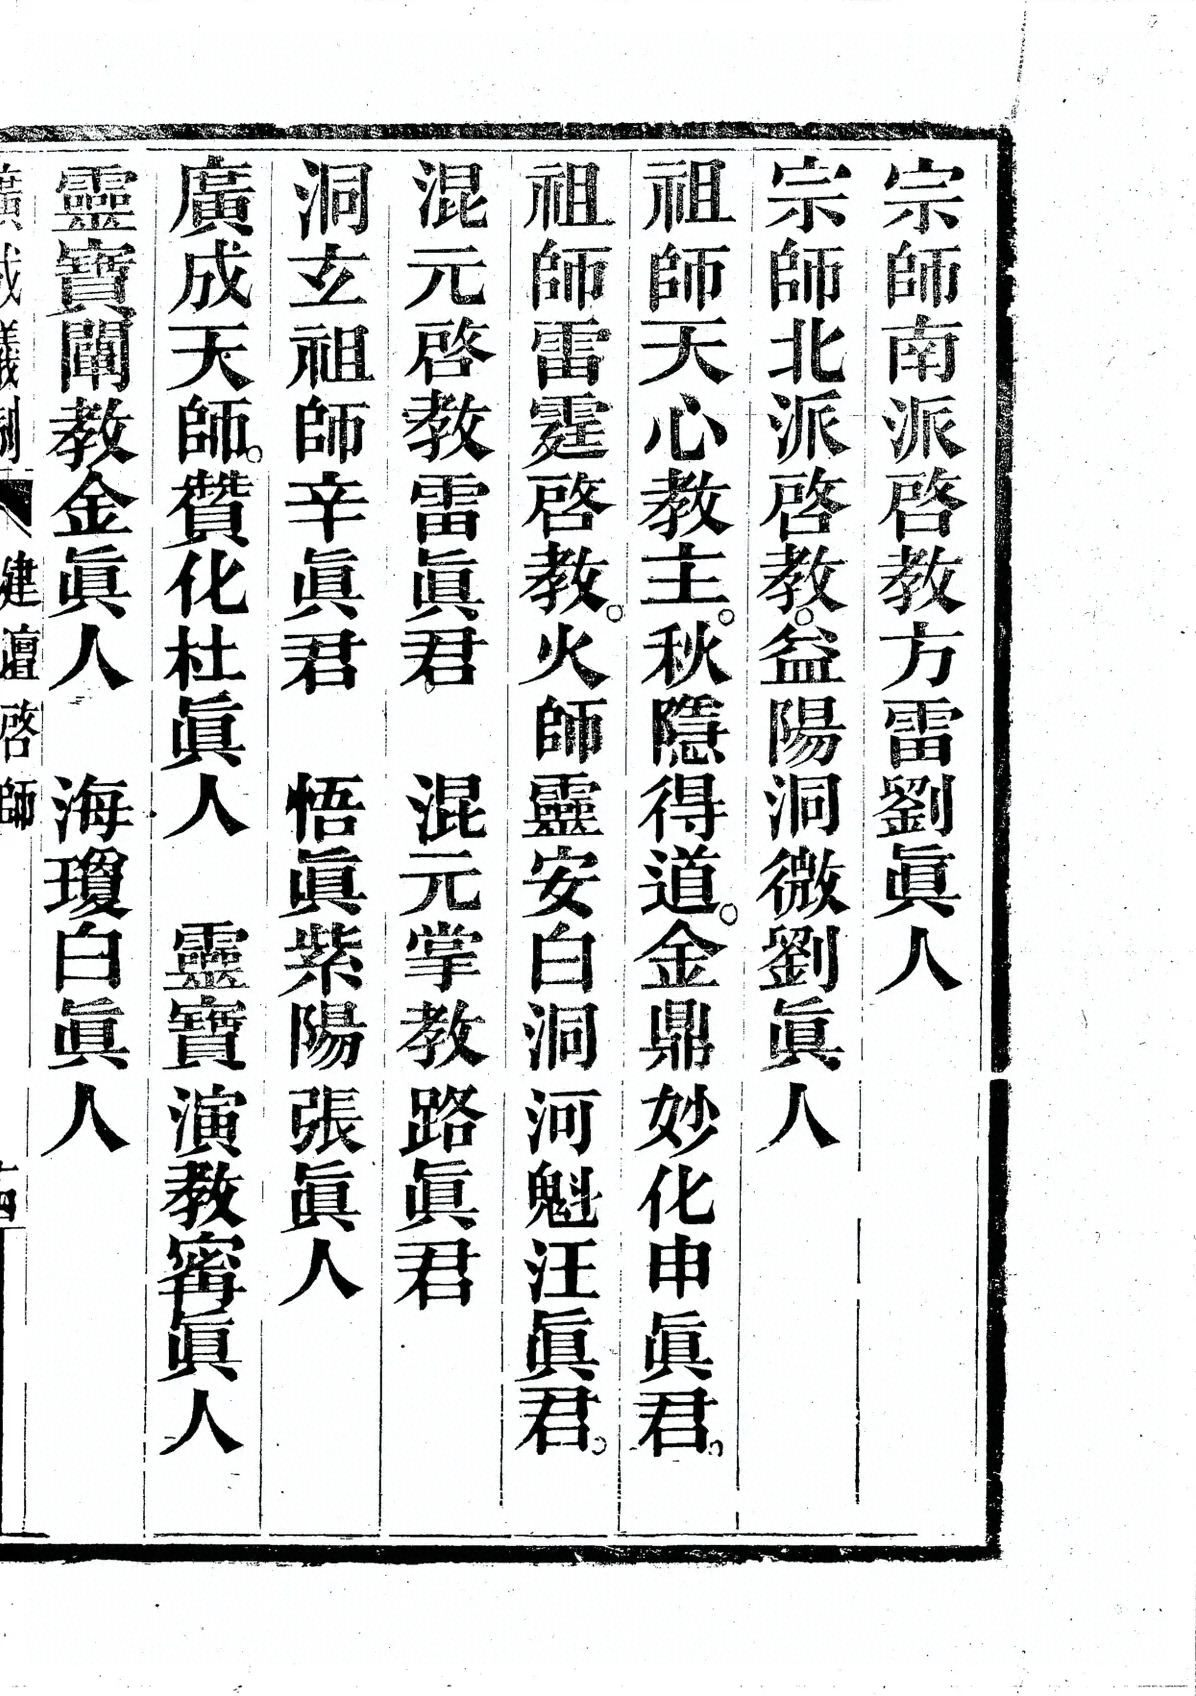 宗師南派啓教方雷劉眞人
宗師北派啓教。益陽洞微劉眞人
祖師天心教主。秋隱得道。金鼎妙化申眞君。
祖師雷霆啓教。火師靈安白洞河魁汪眞君。
混元啓教雷眞君。 混元掌教路眞君
洞玄祖師辛眞君 悟眞紫陽張眞人
廣成天師。贊化杜眞人 靈寶演教寗眞人
靈寶闡教金眞人 海瓊白眞人
廣成儀制 建壇啓師